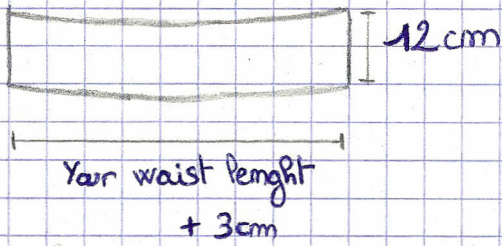 12 cm
Your waist lenght
+ 3cm